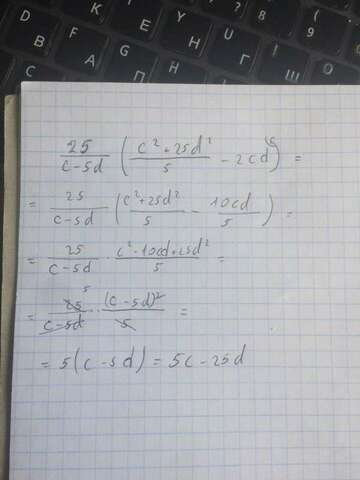 D F G H J K
В А П Р О
Y U
Н Г Ш
& ? 8 * 9
25/(c-5d) ((c²+25d²)/5 - 2cd) =
= 25/(c-5d) ((c²+25d²)/5 - 10cd/5) =
= 25/(c-5d) · (c²-10cd+25d²)/5 =
= 25/(c-5d) · (c-5d)²/5 =
= 5(c-5d) = 5c-25d